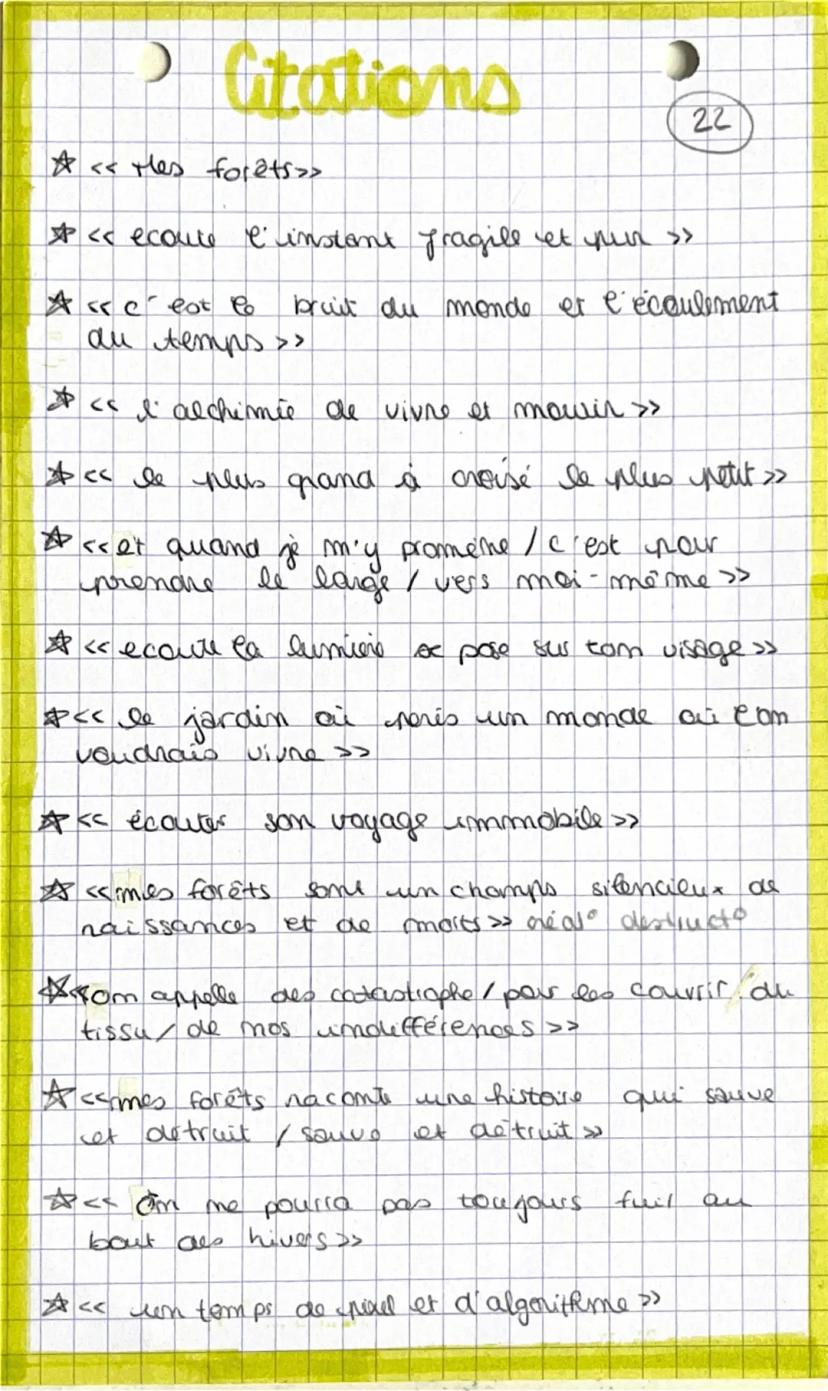 Citations
22
☆ << Mes forêts>>
☆ << ecoute l'instant fragile et pur >>
☆ << c'est le bruit du monde et l'écoulement
du temps >>
☆ << l'alchimie de vivre et mourir >>
☆ << le plus grand à croisé le plus petit >>
☆ << et quand je m'y promène / c'est pour
prendre le large / vers moi-même >>
☆ << ecoute la lumière se pose sur ton visage >>
☆ << le jardin où un monde où l'on
voudrais vivre >>
☆ << écouter son voyage immobile >>
☆ << mes forêts sont un champs silencieux de
naissances et de morts >> créa° destruct°
☆ << on appelle des catastrophe / pour les couvrir / du
tissu / de nos indifférences >>
☆ << mes forêts raconte une histoire qui sauve
et détruit / sauve et détruit >>
☆ << On ne pourra pas toujours fuir au
bout des hivers >>
☆ << un temps de pixel et d'algorithme >>